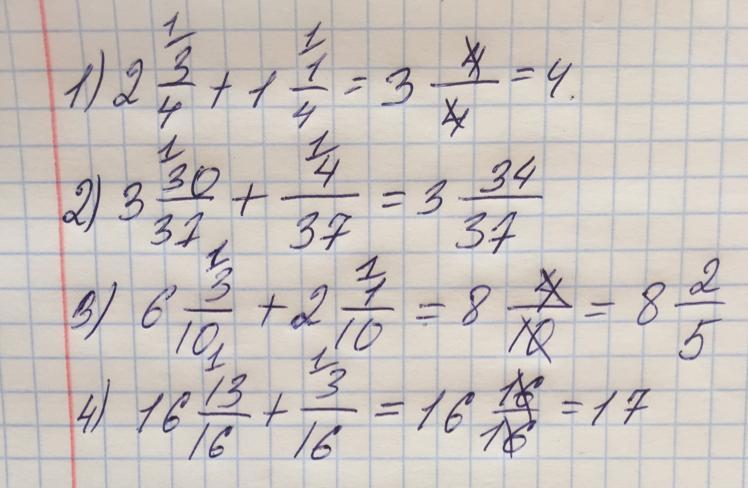 1) 2 3/4 + 1 1/4 = 3 4/4 = 4.
2) 3 30/37 + 4/37 = 3 34/37
3) 6 3/10 + 2 1/10 = 8 4/10 = 8 2/5
4) 16 13/16 + 3/16 = 16 16/16 = 17